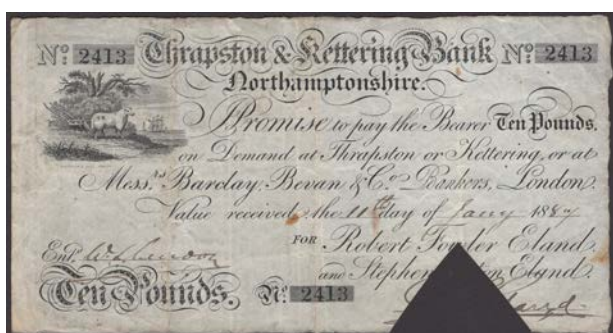 No: 2413 Thrapston & Kettering Bank No: 2413
Northamptonshire.
I Promise to pay the Bearer Ten Pounds.
on Demand at Thrapston or Kettering, or at
Mess.rs Barclay, Bevan & Co. Bankers, London.
Value received the 11th day of Jany 1887
FOR Robert Fowler Eland
Ent.d
and Stephen Eland.
Ten Pounds. No: 2413